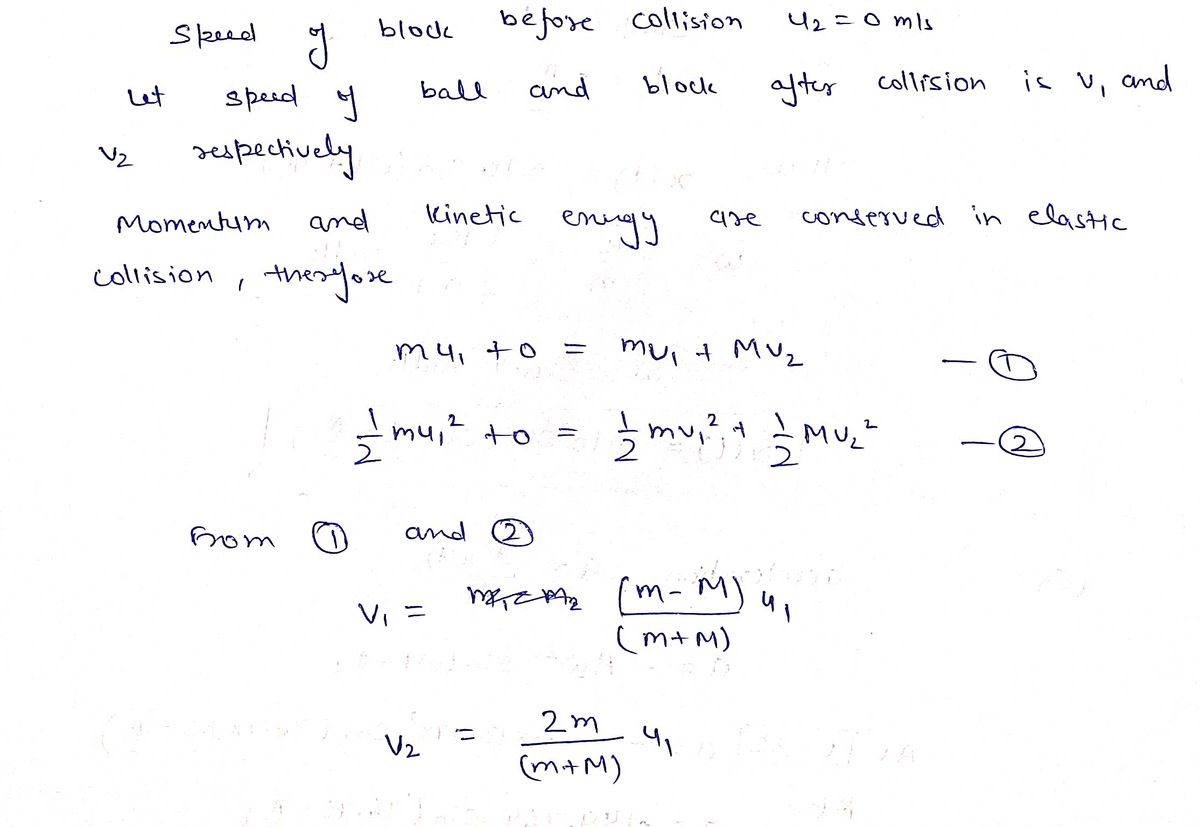 Speed of block before collision u₂ = 0 m/s
Let speed of ball and block after collision is v₁ and
v₂ respectively
Momentum and kinetic energy are conserved in elastic
collision, therefore
mu₁ + 0 = mv₁ + Mv₂ — ①
1/2 mu₁² + 0 = 1/2 mv₁² + 1/2 Mv₂² — ②
From ① and ②
v₁ = (m - M)/(m + M) u₁
v₂ = 2m/(m + M) u₁